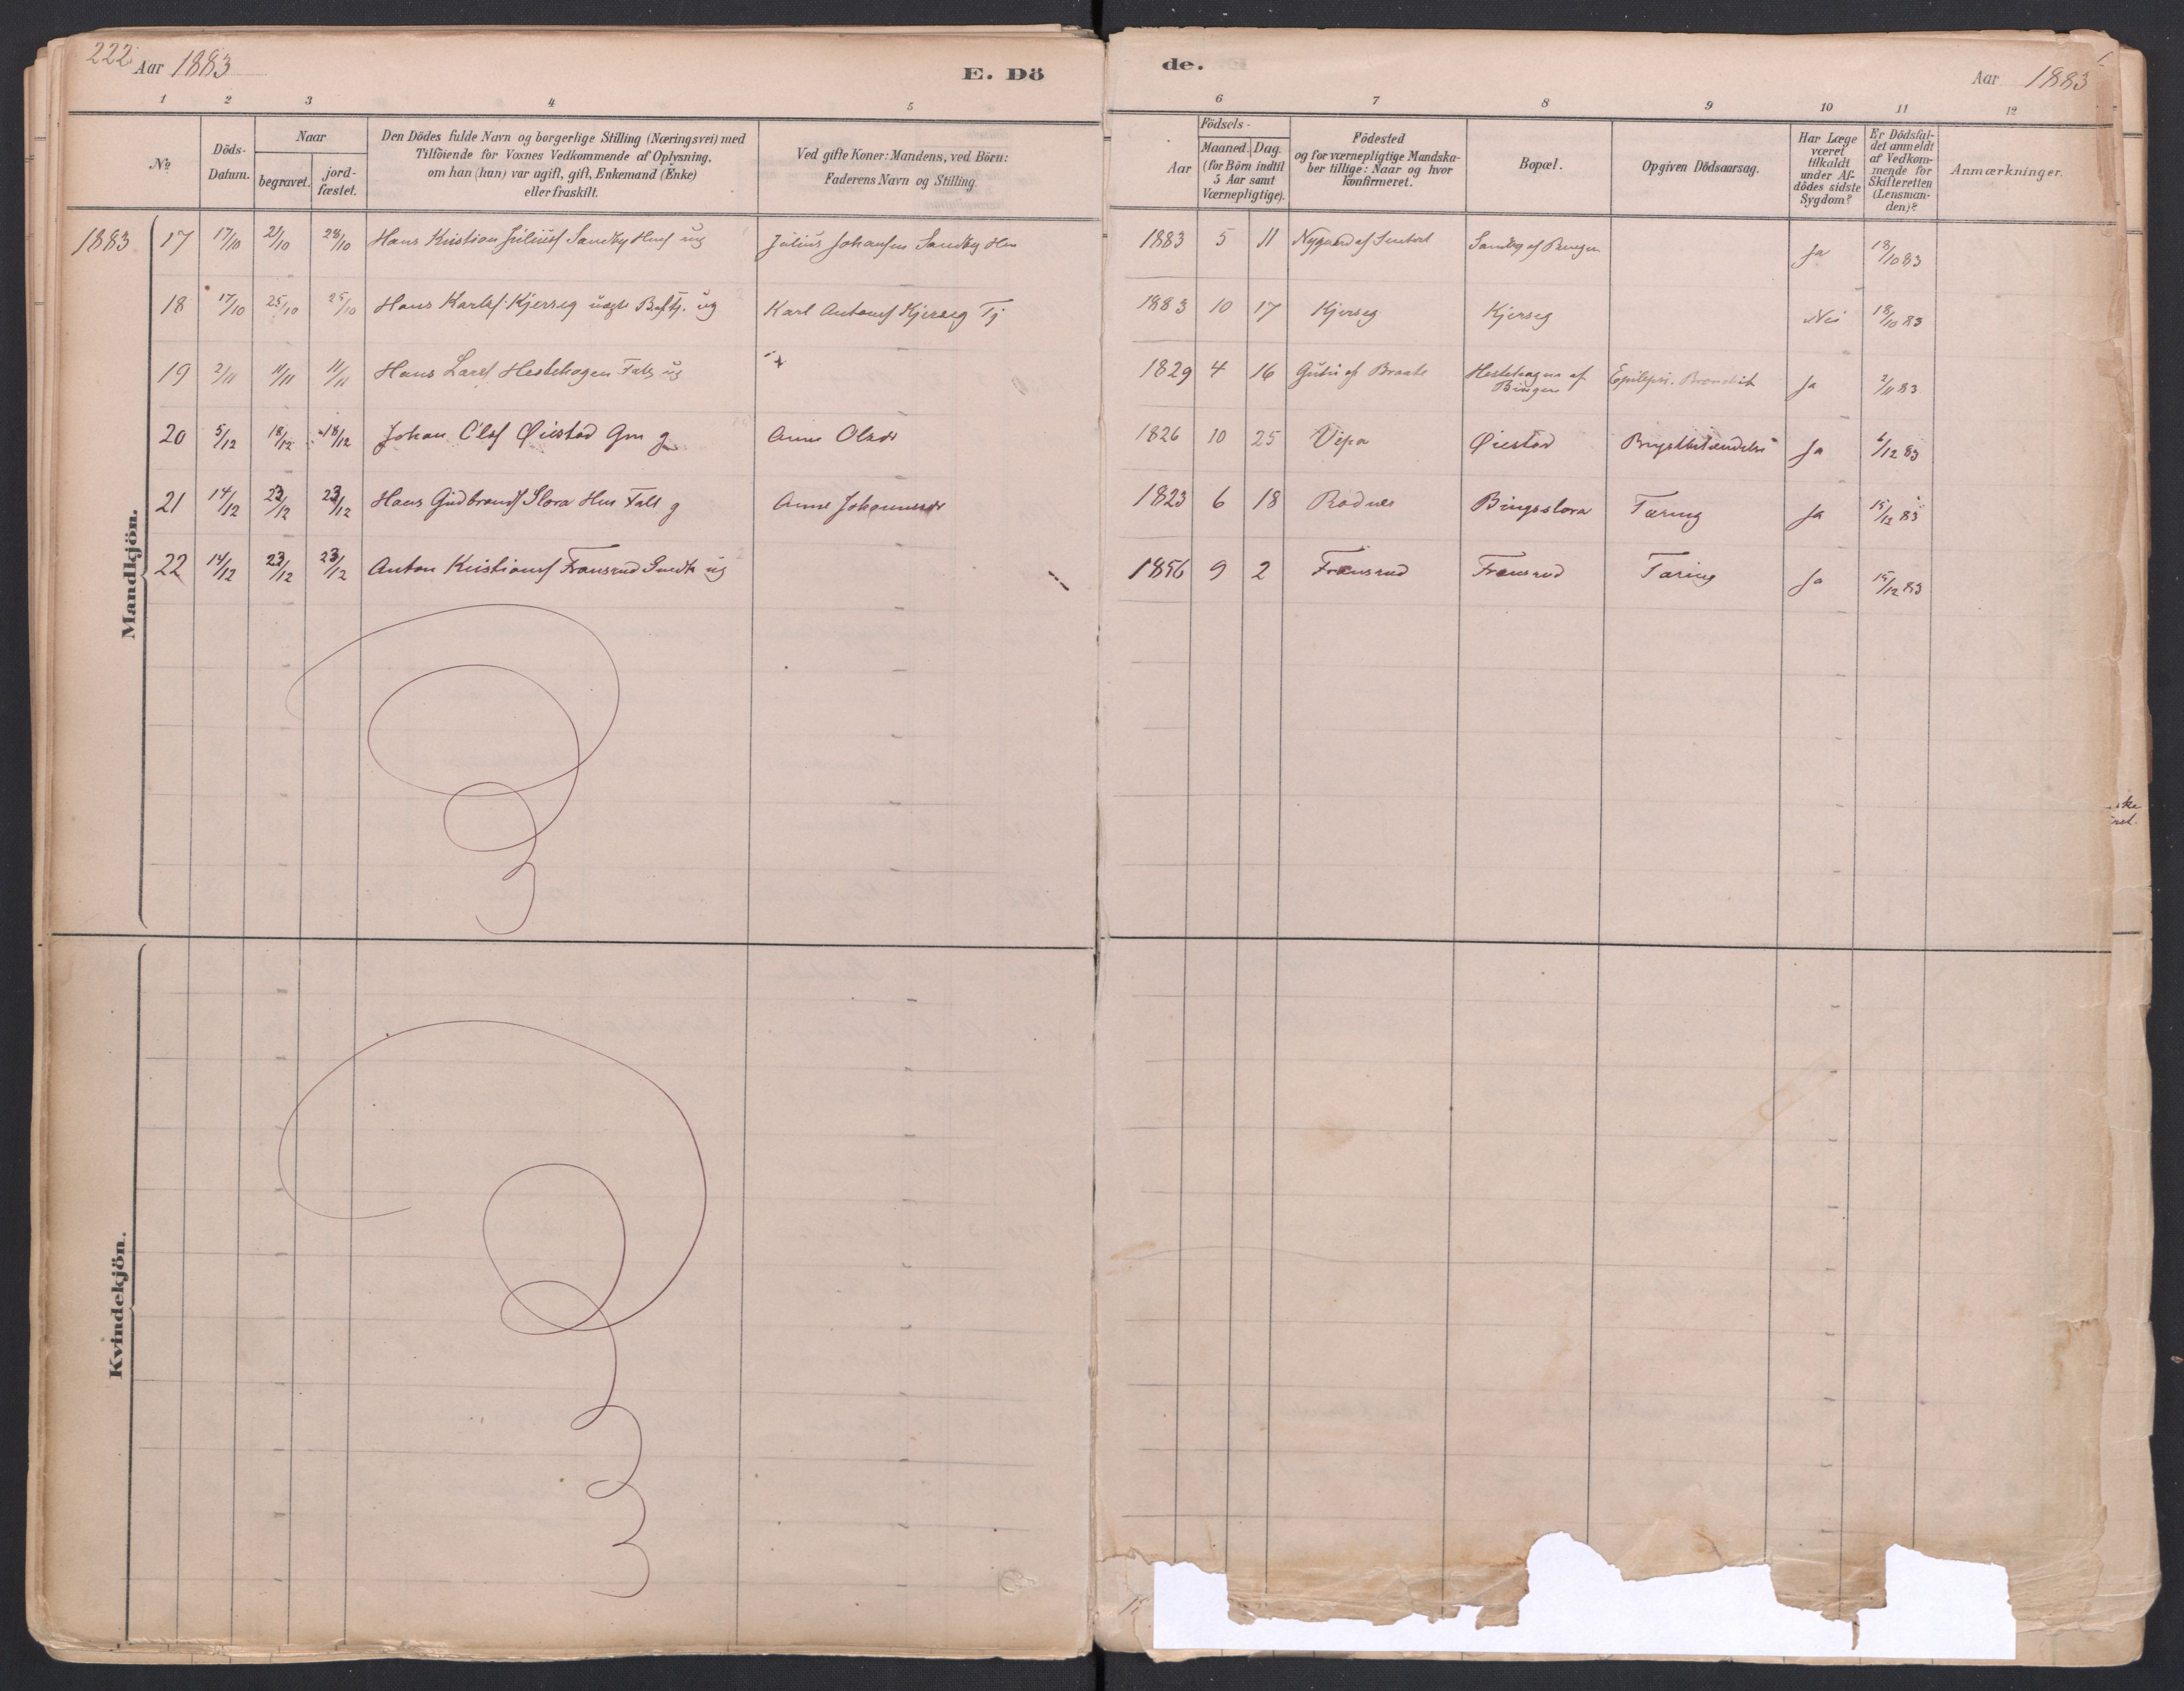 222 Aar 1883 E. Dö
de. Aar 1883
1 2 3 4 5 6 7 8 9 10 11 12
No Döds-Datum. Naar begravet. jord-fæstet.
Den Dödes fulde Navn og borgerlige Stilling (Næringsvei) med
Tilföiende for Voxnes Vedkommende af Oplysning,
om han (hun) var ugift, gift, Enkemand (Enke)
eller fraskilt.
Ved gifte Koner: Mandens, ved Börn:
Faderens Navn og Stilling.
Aar Födsels- Maaned. Dag. (for Börn indtil 5 Aar samt Værnepligtige).
Födested
og for værnepligtige Mandska-
ber tillige: Naar og hvor
konfirmeret.
Bopæl. Opgiven Dödsaarsag.
Har Læge været tilkaldt under Af-dödes sidste Sygdom?
Er Dödsfal-det anmeldt af Vedkom-mende for Skifteretten (Lensman-den)?
Anmærkninger.
Mandkjön.
1883 17 17/10 21/10 28/10 Hans Kristian Juliusf Sandby ug Julius Johansen Sandby Hm 1883 5 11 Nygaard af Sandby af Bingen Ja 18/10 83
18 17/10 25/10 25/10 Hans Karlsf. Kjerseg ug Karl Antonsf Kjerseg Tj 1883 10 17 Kjerseg Kjerseg Nei 18/10 83
19 2/11 11/11 11/11 Hans Larsf Hestehagen Fatt ug 1829 4 16 af Braate Hestehagen af Bingen Epilepsi. Bronchit Ja 2/11 83
20 5/12 18/12 18/12 Johan Olsf Øiestad Gm g Anne Olsdr 1826 10 25 Øiestad Brystbetændelse Ja 6/12 83
21 14/12 23/12 23/12 Hans Gudbrandsf Slora Hm Fatt g Anne Johannesdr 1823 6 18 Rodnes Bingsslora Tæring Ja 15/12 83
22 14/12 23/12 23/12 Anton Kristiansf Fransrud ug 1856 9 2 Fransrud Fransrud Tæring Ja 15/12 83
Kvindekjön.